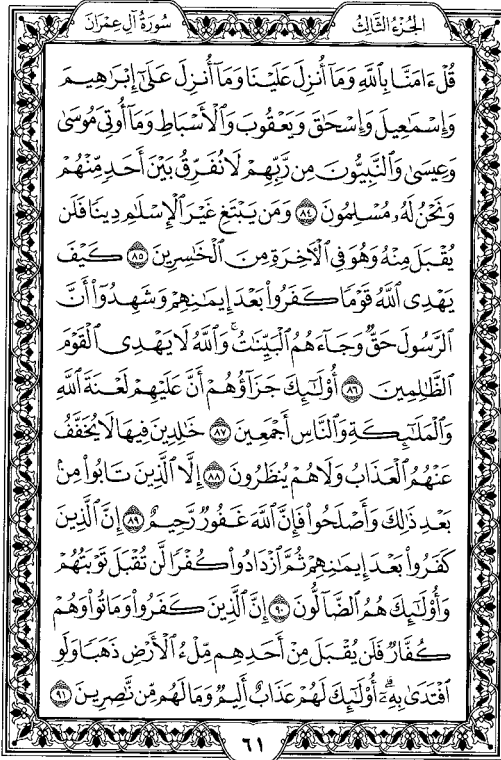 الجزء الثالث
سورة آل عمران
قُلْ ءَامَنَّا بِٱللَّهِ وَمَآ أُنزِلَ عَلَيْنَا وَمَآ أُنزِلَ عَلَىٰٓ إِبْرَٰهِيمَ
وَإِسْمَٰعِيلَ وَإِسْحَٰقَ وَيَعْقُوبَ وَٱلْأَسْبَاطِ وَمَآ أُوتِىَ مُوسَىٰ
وَعِيسَىٰ وَٱلنَّبِيُّونَ مِن رَّبِّهِمْ لَا نُفَرِّقُ بَيْنَ أَحَدٍ مِّنْهُمْ
وَنَحْنُ لَهُۥ مُسْلِمُونَ ٨٤ وَمَن يَبْتَغِ غَيْرَ ٱلْإِسْلَٰمِ دِينًا فَلَن
يُقْبَلَ مِنْهُ وَهُوَ فِى ٱلْءَاخِرَةِ مِنَ ٱلْخَٰسِرِينَ ٨٥ كَيْفَ
يَهْدِى ٱللَّهُ قَوْمًا كَفَرُوا۟ بَعْدَ إِيمَٰنِهِمْ وَشَهِدُوٓا۟ أَنَّ
ٱلرَّسُولَ حَقٌّ وَجَآءَهُمُ ٱلْبَيِّنَٰتُ ۚ وَٱللَّهُ لَا يَهْدِى ٱلْقَوْمَ
ٱلظَّٰلِمِينَ ٨٦ أُو۟لَٰٓئِكَ جَزَآؤُهُمْ أَنَّ عَلَيْهِمْ لَعْنَةَ ٱللَّهِ
وَٱلْمَلَٰٓئِكَةِ وَٱلنَّاسِ أَجْمَعِينَ ٨٧ خَٰلِدِينَ فِيهَا لَا يُخَفَّفُ
عَنْهُمُ ٱلْعَذَابُ وَلَا هُمْ يُنظَرُونَ ٨٨ إِلَّا ٱلَّذِينَ تَابُوا۟ مِنۢ
بَعْدِ ذَٰلِكَ وَأَصْلَحُوا۟ فَإِنَّ ٱللَّهَ غَفُورٌ رَّحِيمٌ ٨٩ إِنَّ ٱلَّذِينَ
كَفَرُوا۟ بَعْدَ إِيمَٰنِهِمْ ثُمَّ ٱزْدَادُوا۟ كُفْرًا لَّن تُقْبَلَ تَوْبَتُهُمْ
وَأُو۟لَٰٓئِكَ هُمُ ٱلضَّآلُّونَ ٩٠ إِنَّ ٱلَّذِينَ كَفَرُوا۟ وَمَاتُوا۟ وَهُمْ
كُفَّارٌ فَلَن يُقْبَلَ مِنْ أَحَدِهِم مِّلْءُ ٱلْأَرْضِ ذَهَبًا وَلَوِ
ٱفْتَدَىٰ بِهِۦٓ ۗ أُو۟لَٰٓئِكَ لَهُمْ عَذَابٌ أَلِيمٌ وَمَا لَهُم مِّن نَّٰصِرِينَ ٩١
٦١